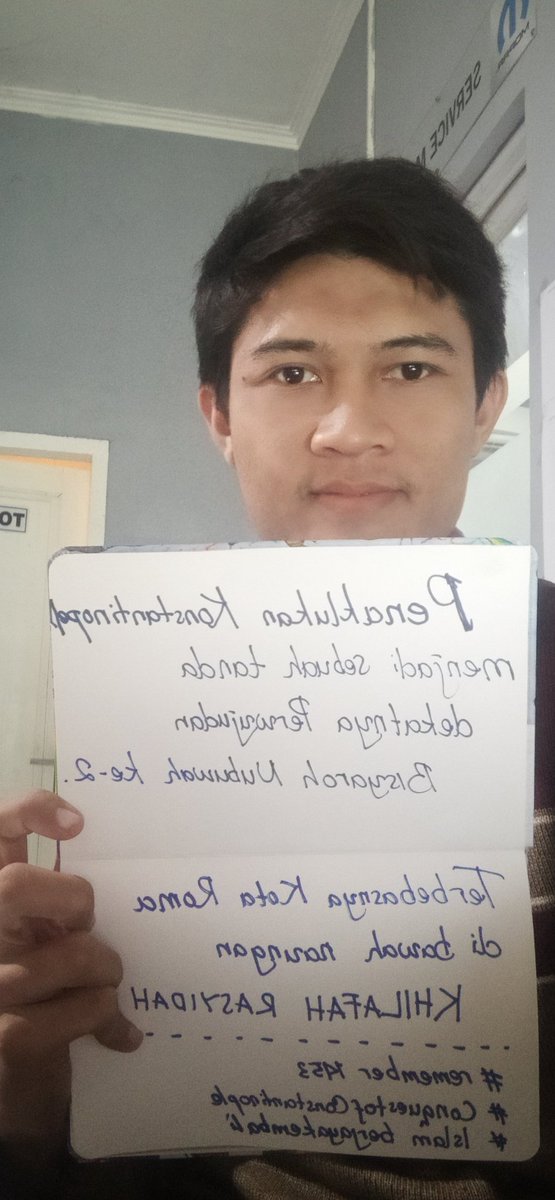 MOPAR
SERVICE M
TO
Penaklukan Konstantinopel
menjadi sebuah tanda
dekatnya Perwujudan
Bisyaroh Nubuwah ke-2.
Terbebasnya Kota Roma
di bawah naungan
KHILAFAH RASYIDAH
# remember 1453
# Conquest of Constantinople
# Islam berjayakembali